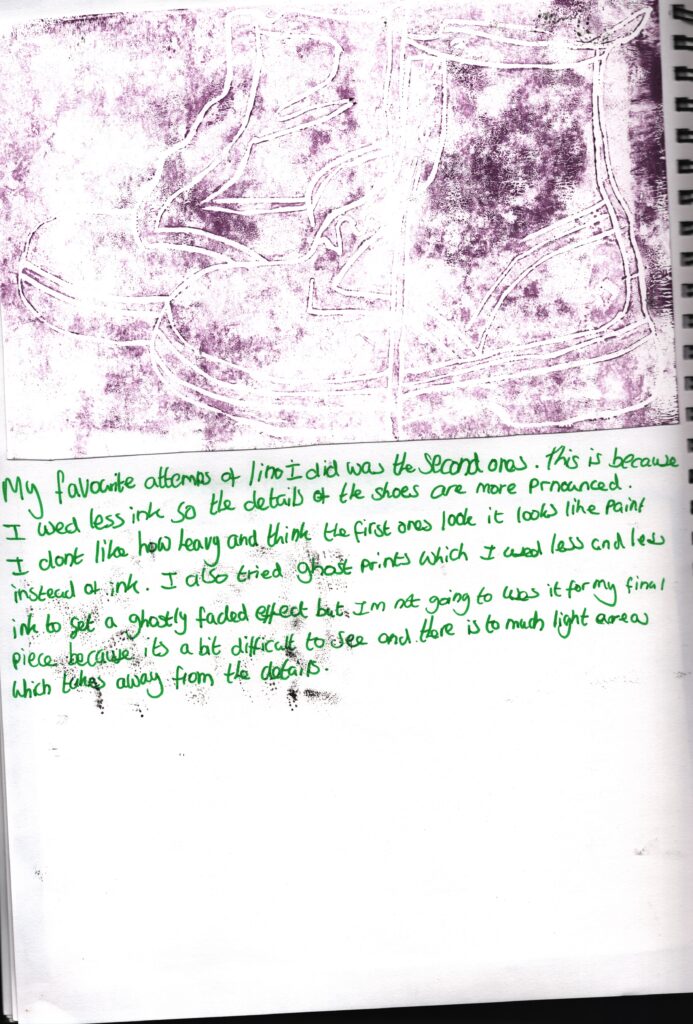 My favourite attemps of lino I did was the second ones. This is because
I used less ink so the details of the shoes are more prnounced.
I dont like how heavy and think the first ones look it looks like paint
instead of ink. I also tried ghost prints which I used less and less
ink to get a ghostly faded effect but I'm not going to use it for my final
piece because its a bit difficult to see and there is to much light areas
which takes away from the details.